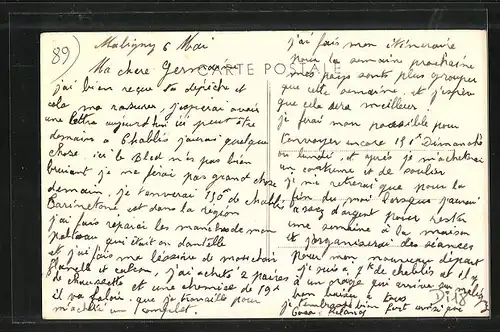 89
CARTE POSTALE
Maligny 6 Mai
Ma chere Germaine
j'ai bien reçue ta depêche et
cela ma rassurer, j'esperai avoir
une lettre aujourd'hui ici peut être
demain a Chablis j'aurai quelque
chose, ici le Bled n'es pas bien
bruiant je ne ferai pas grand chose
demain. je t'enverai 150f de Chablis
est dans la region
j'ai fais reparer les manches de mon
palteau qui était en dantelle
et j'ai fais ma lessive de mouchoir
flanelle et calson, j'ai acheté 2 paires
de chaussette et une chemise de 19f
il va faloir que je travaille pour
m'acheté un complet.
j'ai fais mon itineraire
pour la semaine prochaine
mes pays sont plus grouper
que cette semaine. et j'espère
que cela sera meilleur
je ferai mon possible pour
t'envoyer encore 150f Dimanche
ou lundi, et après je m'acheterai
un costume et de soulier
je me reterai que pour la
fin du moi lorsque j'aurai
assez d'argent pour resté
une semaine a la maison
et j'organiserai des séances
pour mon nouveau départ
je suis a 7k de chablis et il y
a un orage qui arrive sur maligny
bon baiser a tous
je t'embrasse bien fort
D118